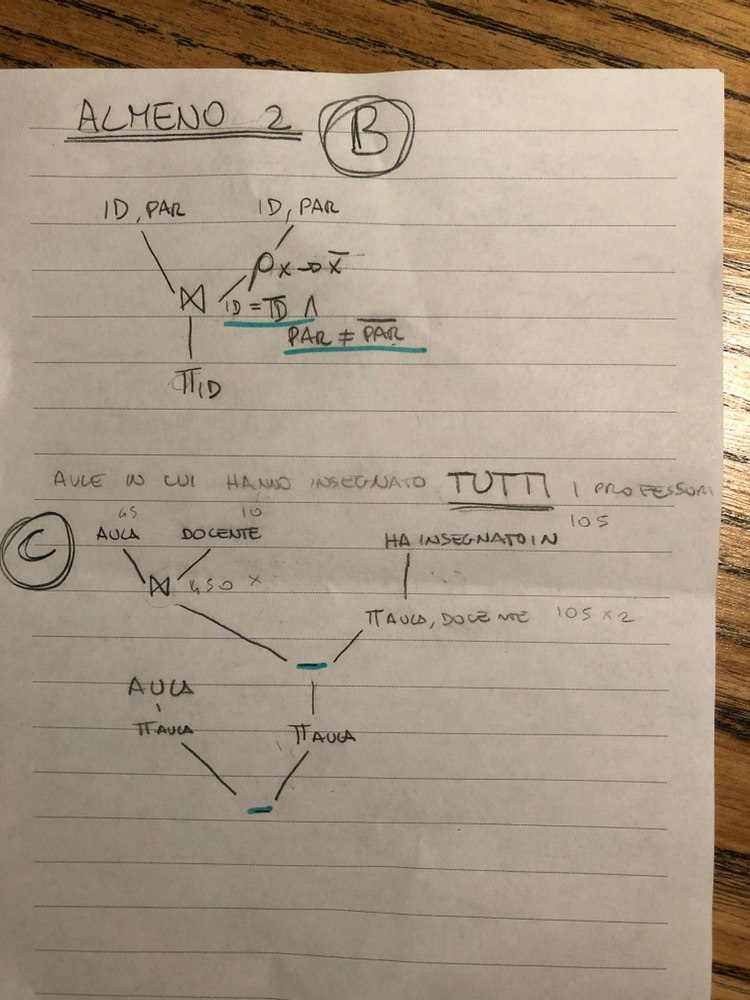 ALMENO 2 B
ID, PAR ID, PAR
ρ x→x̅
⋈ ID = I̅D̅ ∧
PAR ≠ P̅A̅R̅
π ID
AULE IN CUI HANNO INSEGNATO TUTTI I PROFESSORI
45 10 105
C AULA DOCENTE HA INSEGNATO IN
⋈ 450 x
π AULA, DOCENTE 105 x 2
—
AULA
π AULA π AULA
—